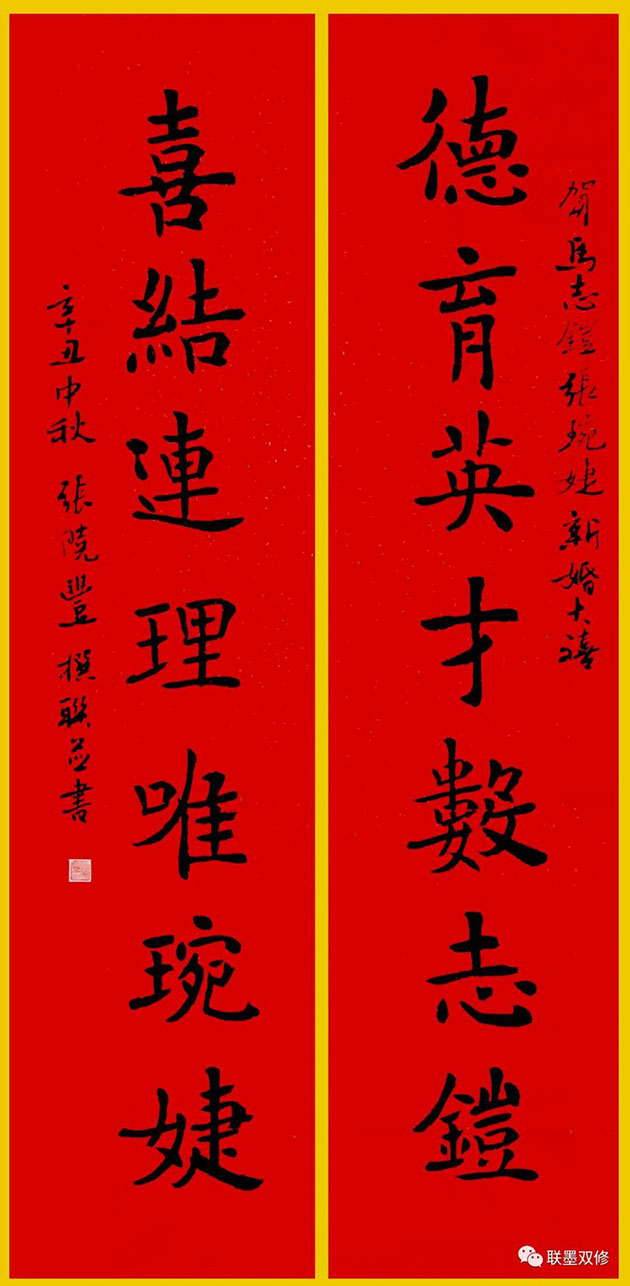 賀馬志鎧張琬婕新婚大禧
德育英才數志鎧
喜結連理唯琬婕
辛丑中秋 張曉豐撰聯并書
联墨双修